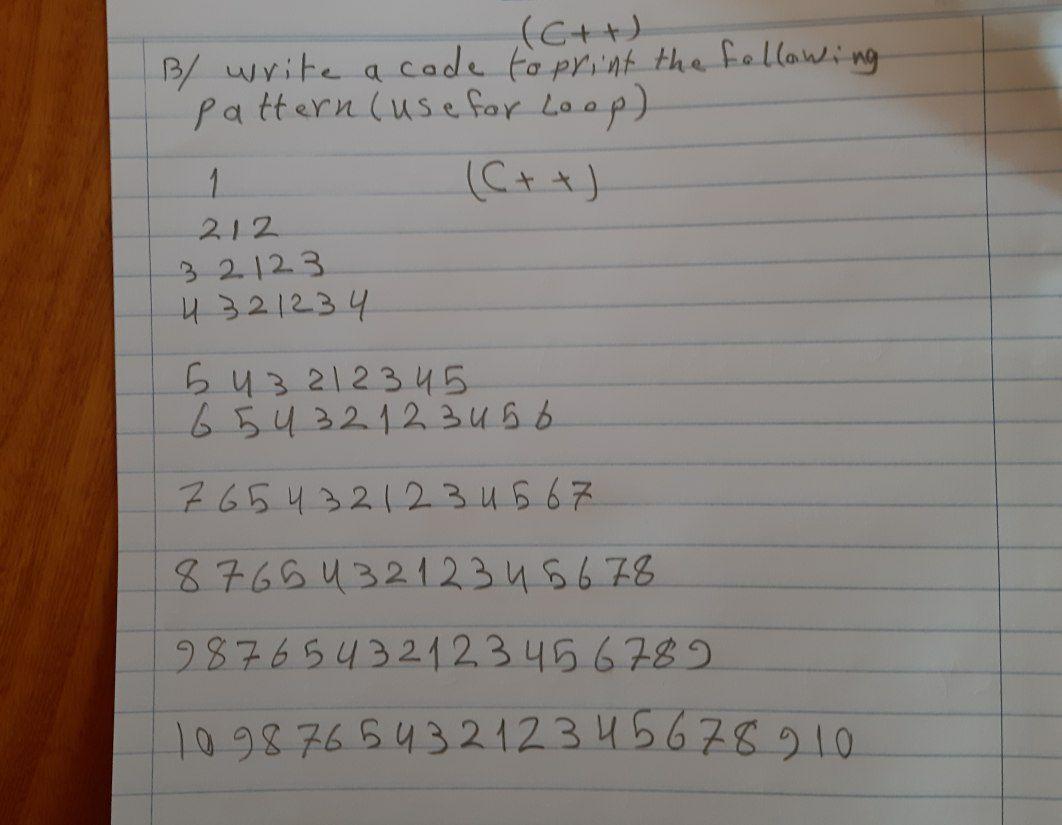 (C++)
B/ write a code to print the following
pattern (use for Loop)
1 (C++)
212
3 2123
4 321234
5 4 3 212345
6 5 4 32123456
7 6 5 4 321234567
8 7654 32123456 78
98765432123456789
10 98 765432123456789 10